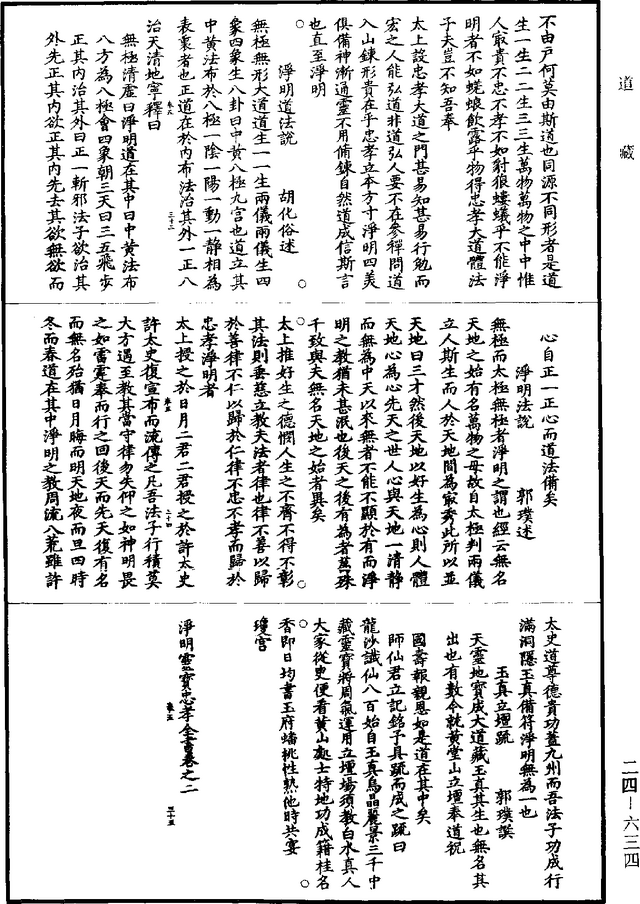 道藏
不由戶何莫由斯道也同源不同形者是道
生一生二二生三三生萬物萬物之中中惟
人㝡貴不忠不孝不如豺狼螻蟻乎不能淨
明者不如蜣蜋飲露乎物得忠孝大道體法
子夫豈不知吾奉
太上設忠孝大道之門甚易知甚易行勉而
宏之人能弘道非道弘人要不在參禪問道
入山鍊形貴在乎忠孝立本方寸淨明四美
俱備神漸通靈不用脩鍊自然道成信斯言
也直至淨明
淨明道法說
胡化俗述
無極無形大道道生一一生兩儀兩儀生四
象四象生八卦曰中黃八極九宮也道立其
中黃法布於八極一陰一陽一動一靜相為
表裏者也正道在於內布法治其外一正八
治天清地寧釋曰
無極清虛曰淨明道在其中曰中黃法布
八方為八極會四象朝三天曰三五飛步
正其內治其外曰正一斬邪法子欲治其
外先正其內欲正其內先去其欲無欲而
心自正一正心而道法備矣
淨明法說
郭璞述
無極而太極無極者淨明之謂也經云無名
天地之始有名萬物之母故自太極判兩儀
立人斯生而人於天地間為㝡秀此所以並
天地曰三才然後天地以好生為心則人體
天地心為心先天之世人心與天地一清靜
而無為中天以來無者不能不顯於有而淨
明之教猶未甚泯也後天之後有為者萬殊
千致與夫無名天地之始者異矣
太上推好生之德憫人生之不齊不得不彰
其法則垂慈立教夫法者律也律不善以歸
於善律不仁以歸於仁律不忠不孝而歸於
忠孝淨明者
太上授之於日月二君二君授之於許太史
許太史復宣布而流傳之凡吾法子行積莫
大方遇至教其當守律勿失仰之如神明畏
之如雷霆奉而行之回後天而先天復有名
而無名殆猶日月晦而明天地夜而旦四時
冬而春道在其中淨明之教周流八荒雖許
太史道尊德貴功蓋九州而吾法子功成行
滿洞隱玉真備符淨明無為一也
玉真立壇疏
郭璞譔
天靈地寶成大道藏玉真其生也無名其
出也有數今就黃堂山立壇奉道祝
國壽報親恩如是道在其中矣
師仙君立記銘子具疏而成之疏曰
龍沙讖仙八百始自玉真烏晶麗景三千中
藏靈寶將周氣運用立壇場須教白水真人
大家從史便看黃山處士特地功成籍桂名
香即日均書玉府蟠桃性熟他時共宴
瓊宮
淨明靈寶忠孝全書卷之二
二四—六三四